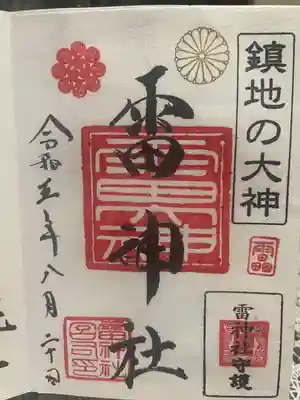 鎮地の大神
雷神社守護
雷神社
令和五年八月二十日